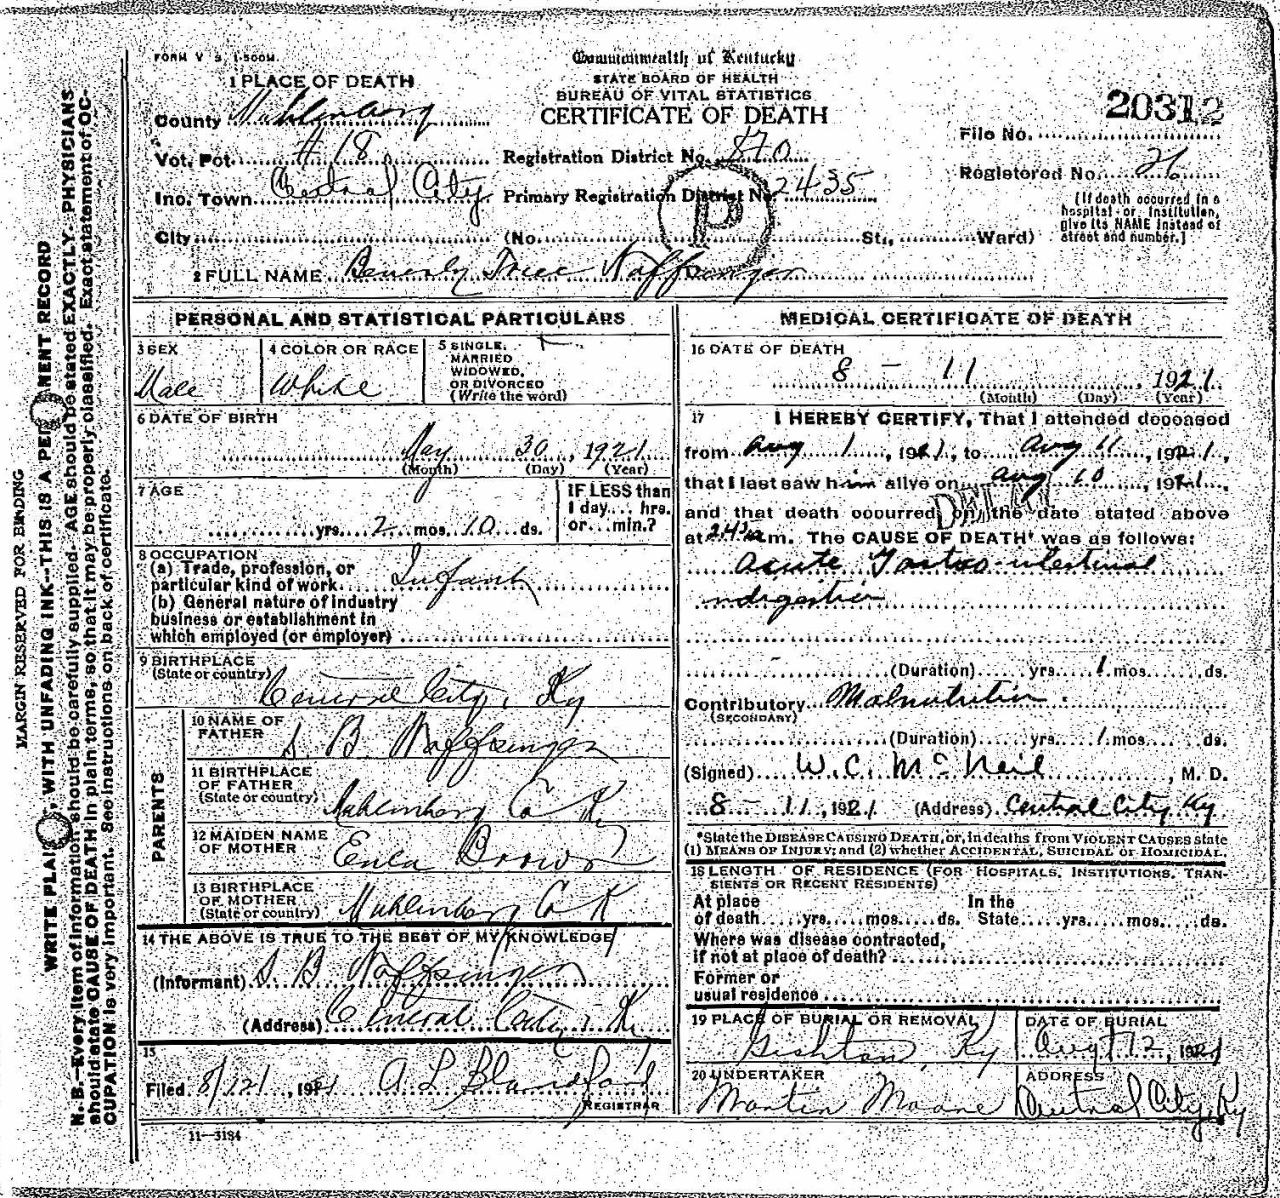 FORM V S 1-500M.
Commonwealth of Kentucky
STATE BOARD OF HEALTH
BUREAU OF VITAL STATISTICS
CERTIFICATE OF DEATH
20312
File No.
1 PLACE OF DEATH
County Muhlenberg
Vot. Pct. # 18
Registration District No. 870
Registered No. 26
Inc. Town Central City
Primary Registration District No. 2435
(If death occurred in a hospital or institution, give its NAME instead of street and number.)
City (No. St., Ward)
P
2 FULL NAME Beverly Naffsinger
PERSONAL AND STATISTICAL PARTICULARS
3 SEX
Male
4 COLOR OR RACE
White
5 SINGLE, MARRIED WIDOWED, OR DIVORCED (Write the word)
6 DATE OF BIRTH
May 30, 1921
(Month) (Day) (Year)
7 AGE
yrs. 2 mos. 10 ds.
IF LESS than 1 day... hrs. or...min.?
8 OCCUPATION
(a) Trade, profession, or particular kind of work Infant
(b) General nature of industry business or establishment in which employed (or employer)
9 BIRTHPLACE (State or country)
Central City, Ky
PARENTS
10 NAME OF FATHER
S B Naffsinger
11 BIRTHPLACE OF FATHER (State or country)
Muhlenberg Co Ky
12 MAIDEN NAME OF MOTHER
Brown
13 BIRTHPLACE OF MOTHER (State or country)
Muhlenberg Co K
14 THE ABOVE IS TRUE TO THE BEST OF MY KNOWLEDGE
(Informant) S B Naffsinger
(Address) Central City, Ky
15
Filed 8/12, 1921 A L Blandford
REGISTRAR
11-3184
MEDICAL CERTIFICATE OF DEATH
16 DATE OF DEATH
8 - 11, 1921
(Month) (Day) (Year)
17 I HEREBY CERTIFY, That I attended deceased
from Aug 1, 1921, to Aug 11, 1921,
that I last saw him alive on Aug 10, 1921,
and that death occurred, on the date stated above
at m. The CAUSE OF DEATH* was as follows:
Acute Gastro-intestinal
indigestion
(Duration) yrs. 1 mos. ds.
Contributory Malnutrition.
(SECONDARY)
(Duration) yrs. 1 mos. ds.
(Signed) W. C. McNeil, M. D.
8-11, 1921 (Address) Central City Ky
*State the DISEASE CAUSING DEATH, or, in deaths from VIOLENT CAUSES state
(1) MEANS OF INJURY; and (2) whether ACCIDENTAL, SUICIDAL or HOMICIDAL.
18 LENGTH OF RESIDENCE (FOR HOSPITALS, INSTITUTIONS, TRANSIENTS OR RECENT RESIDENTS)
At place of death yrs. mos. ds.
In the State yrs. mos. ds.
Where was disease contracted,
if not at place of death?
Former or
usual residence
19 PLACE OF BURIAL OR REMOVAL
Gishton, Ky
DATE OF BURIAL
Augt 12, 1921
20 UNDERTAKER
Martin Moore
ADDRESS
Central City, Ky
MARGIN RESERVED FOR BINDING
WRITE PLAINLY, WITH UNFADING INK—THIS IS A PERMANENT RECORD
N. B.—Every item of information should be carefully supplied. AGE should be stated EXACTLY. PHYSICIANS
should state CAUSE OF DEATH in plain terms, so that it may be properly classified. Exact statement of OC-
CUPATION is very important. See instructions on back of certificate.